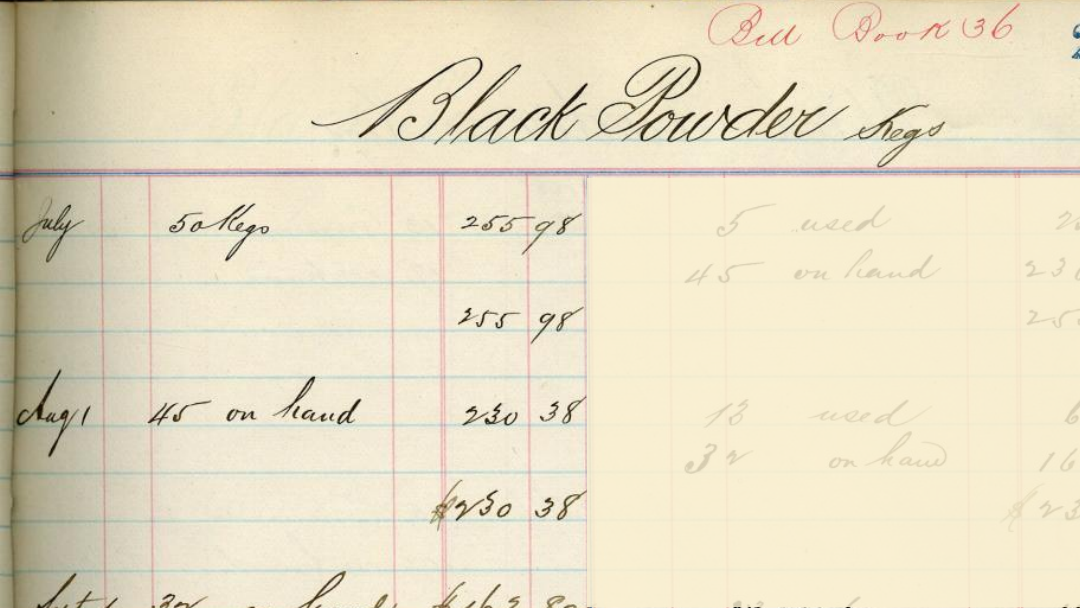 Bill Book 36
Black Powder Kegs
July 50 Kegs 255 98
5 used
45 on hand
255 98
Aug 1 45 on hand 230 38
13 used
32 on hand
$230 38